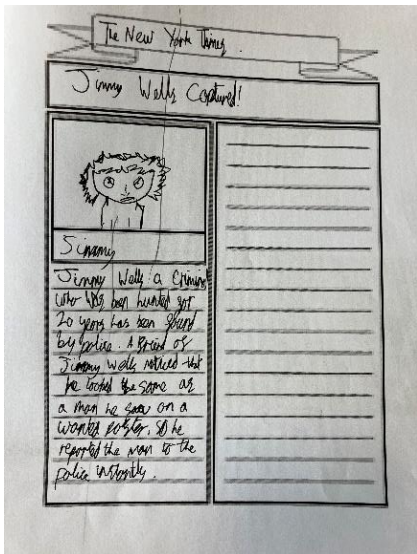 The New York Times.
Jimmy Wells Captured!
Jimmy
Jimmy Wells a Criminal
who has been hunted for
20 years has been found
by police. A friend of
Jimmy Wells noticed that
he looked the same as
a man he saw on a
wanted poster, so he
reported the man to the
police instantly.